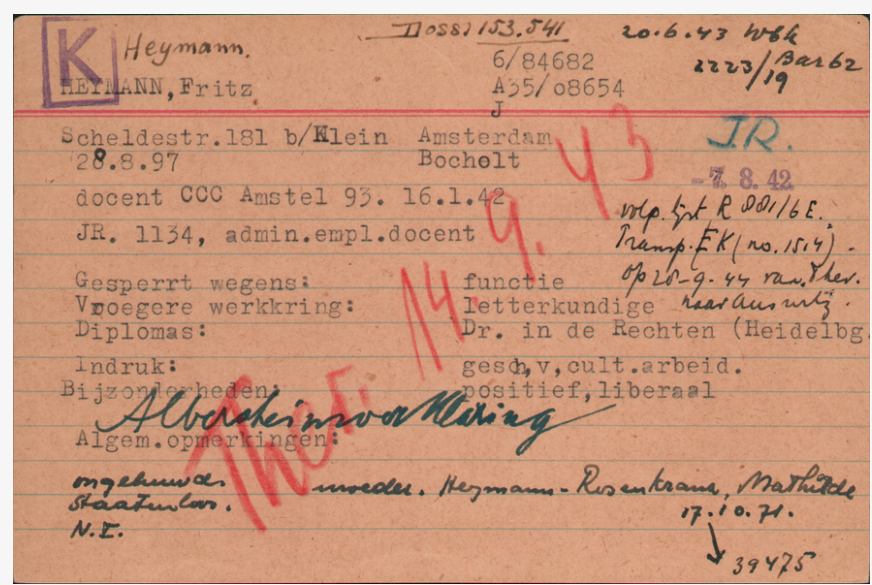 K Heymann. Doss! 153.541 20.6.43 Wbk
6/84682 2223/Bar 62
HEYMANN,Fritz A35/o8654 /19
J
Scheldestr.181 b/Klein Amsterdam J.R.
28.8.97 Bocholt - 7. 8. 42.
docent CCC Amstel 93. 16.1.42
volp. lijst R 881/6E.
JR. 1134, admin.empl.docent Transp. EK (no. 1514) -
Gesperrt wegens: functie op 28-9-44 van Ther.
Vroegere werkkring: letterkundige naar Auswitz.
Diplomas: Dr. in de Rechten (Heidelbg.
Indruk: gesch,v,cult.arbeid.
Bijzonderheden: positief,liberaal
Ther. 14. 9. 43
Algem.opmerkingen:
ongehuwd. moeder. Heymann-Rosenkranz, Mathilde
Staatenloos. 17.10.71.
N.I.
39475